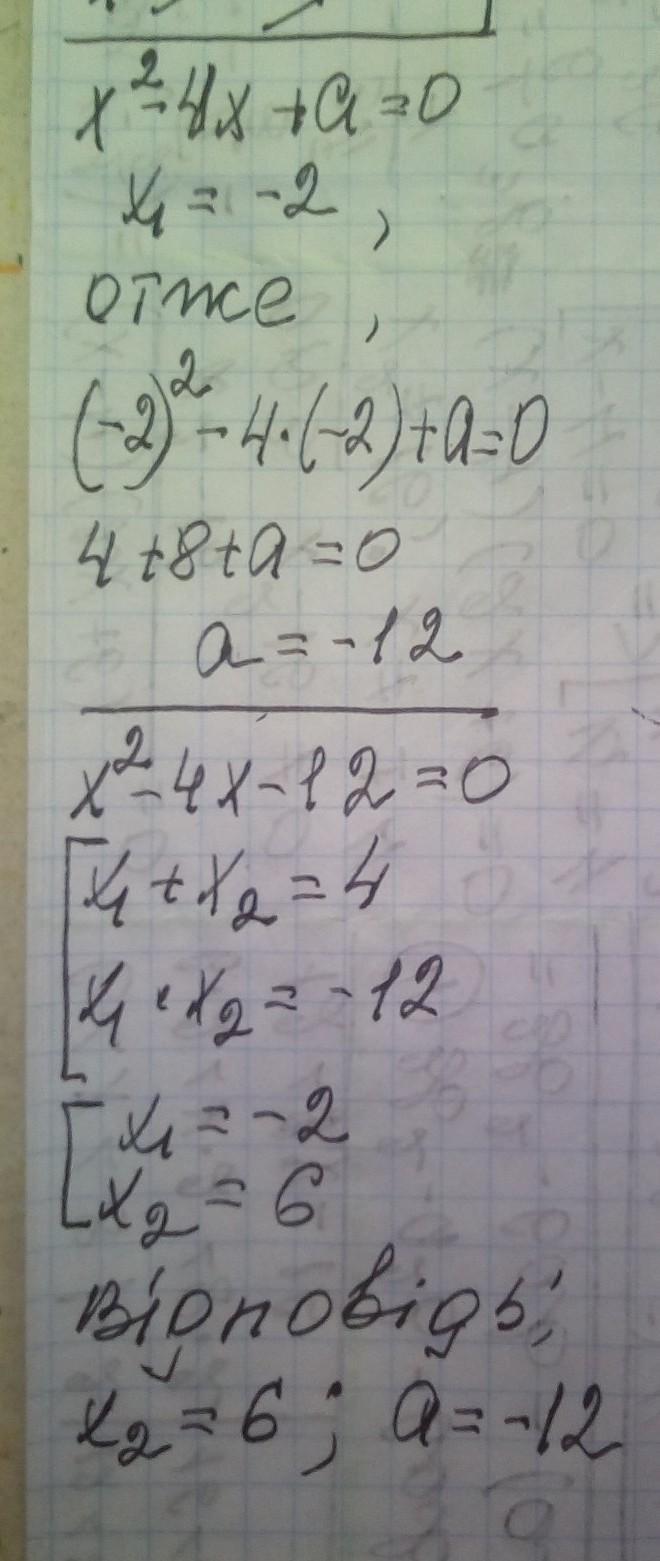 x²-4x+a=0
x₁=-2,
отже,
(-2)²-4·(-2)+a=0
4+8+a=0
a=-12
x²-4x-12=0
[x₁+x₂=4
x₁·x₂=-12
[x₁=-2
x₂=6
Відповідь:
x₂=6; a=-12